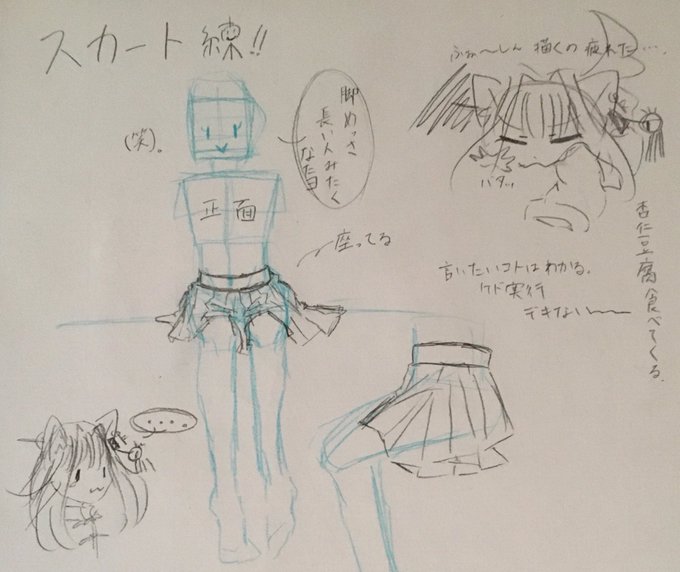 スカート練!!
(笑)。
脚めっさ
長い人みたく
なた日
正面
座ってる
描くの疲れた…。
バタッ
言いたいコトはわかる。
ケド実行
デキない〜〜
杏仁豆腐食べてくる。
....